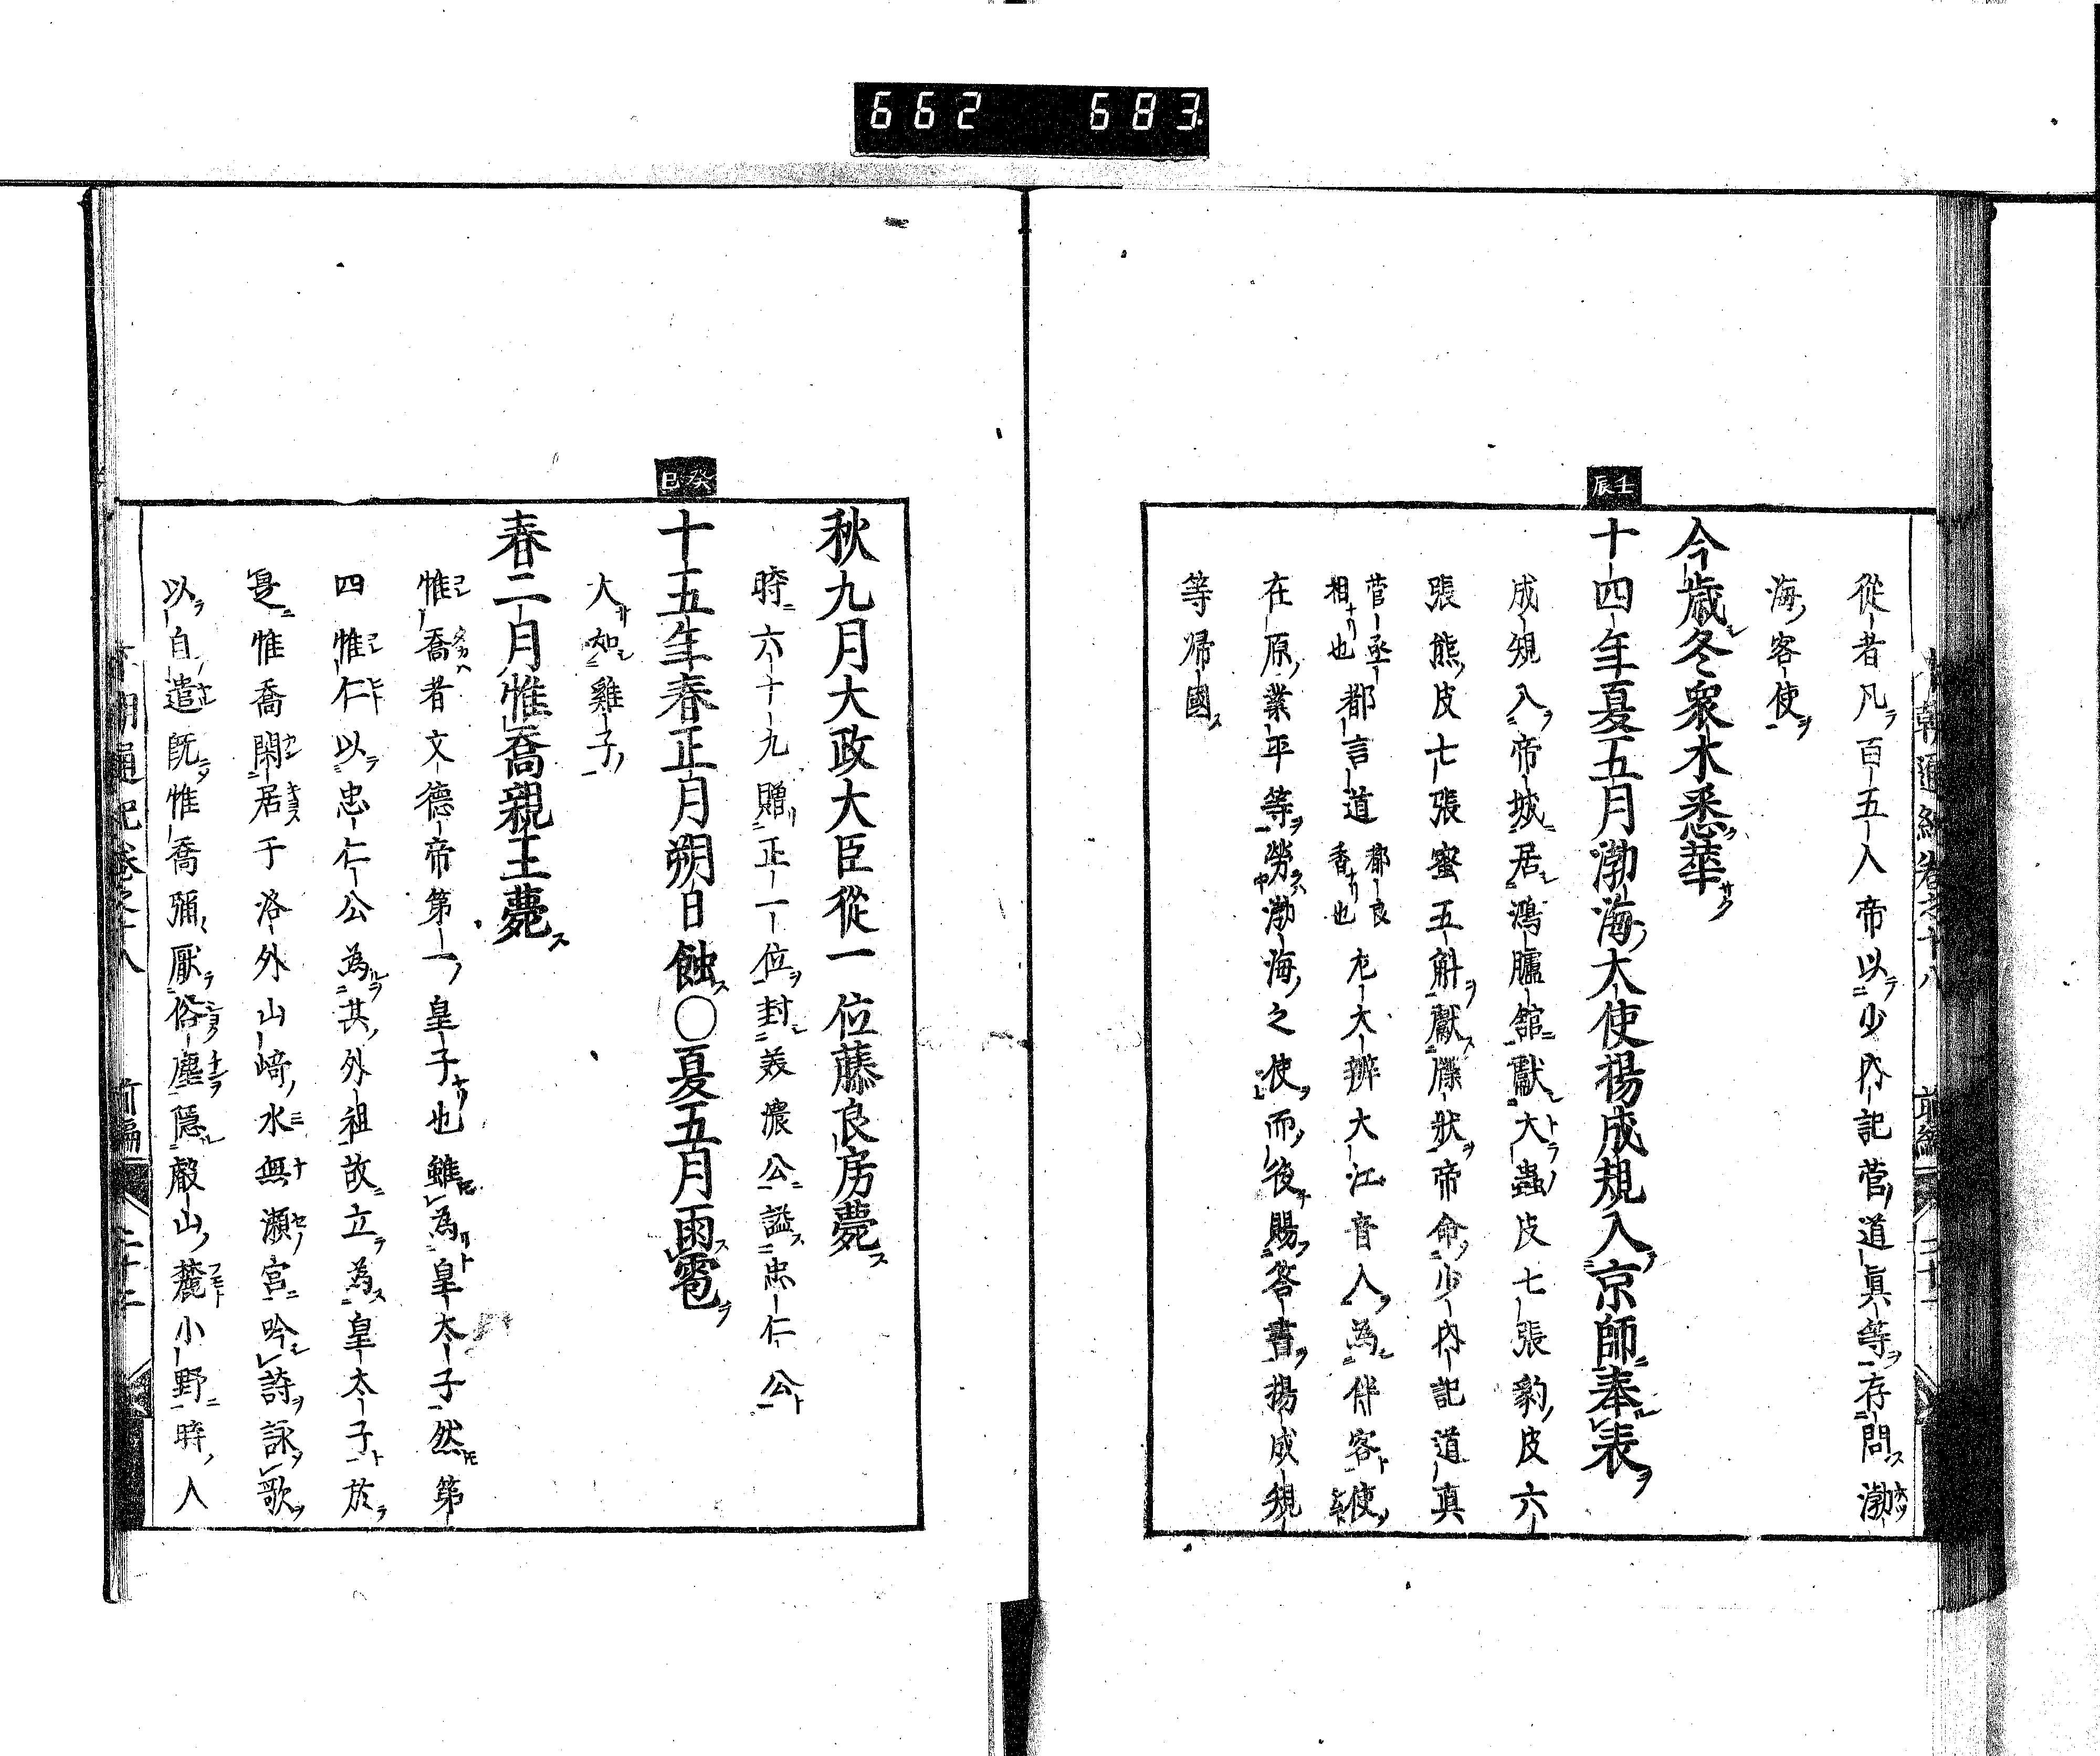 662 683
從者凡百五人帝以少内記菅道眞等存問渤
海客使
今歳冬衆木悉華
壬辰
十四年夏五月渤海大使楊成規入京師奉表
成規入帝城居鴻臚舘獻大蟲皮七張豹皮六
張熊皮七張蜜五斛獻牒状帝命少内記道真
菅丞相也都言道都良香也左大辨大江音人為伴客使
在原業平等勞渤海之使而後賜答書楊成規
等帰國
秋九月大政大臣從一位藤良房薨
時六十九贈正一位封美濃公謚忠仁公
癸巳
十五年春正月朔日蝕〇夏五月雨雹
大如雞子
春二月惟喬親王薨
惟喬者文德帝第一皇子也雖為皇太子然第
四惟仁以忠仁公為其外祖故立為皇太子於
是惟喬閑居于洛外山﨑水無瀬宮吟詩詠歌
以自遣既惟喬彌厭俗塵隱叡山麓小野時人